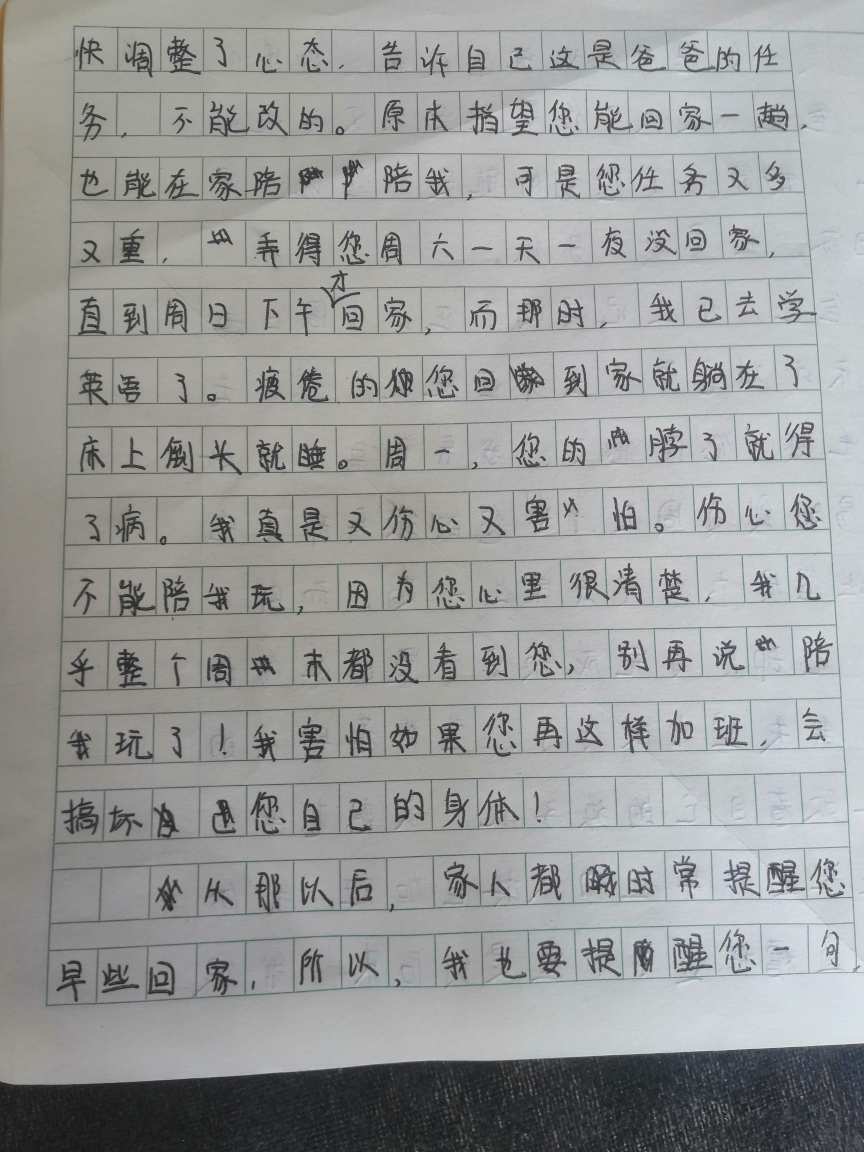 快调整了心态，告诉自己这是爸爸的任
务，不能改的。原本指望您能回家一趟，
也能在家陪陪我，可是您任务又多
又重，弄得您周六一天一夜没回家，
直到周日下午才回家，而那时，我已去学
英语了。疲倦的您回到家就躺在了
床上倒长就睡。周一，您的脖子就得
了病。我真是又伤心又害怕。伤心您
不能陪我玩，因为您心里很清楚，我几
乎整个周末都没看到您，别再说陪
我玩了！我害怕如果您再这样加班，会
搞坏您自己的身体！
从那以后，家人都时常提醒您
早些回家，所以，我也要提醒您一句，